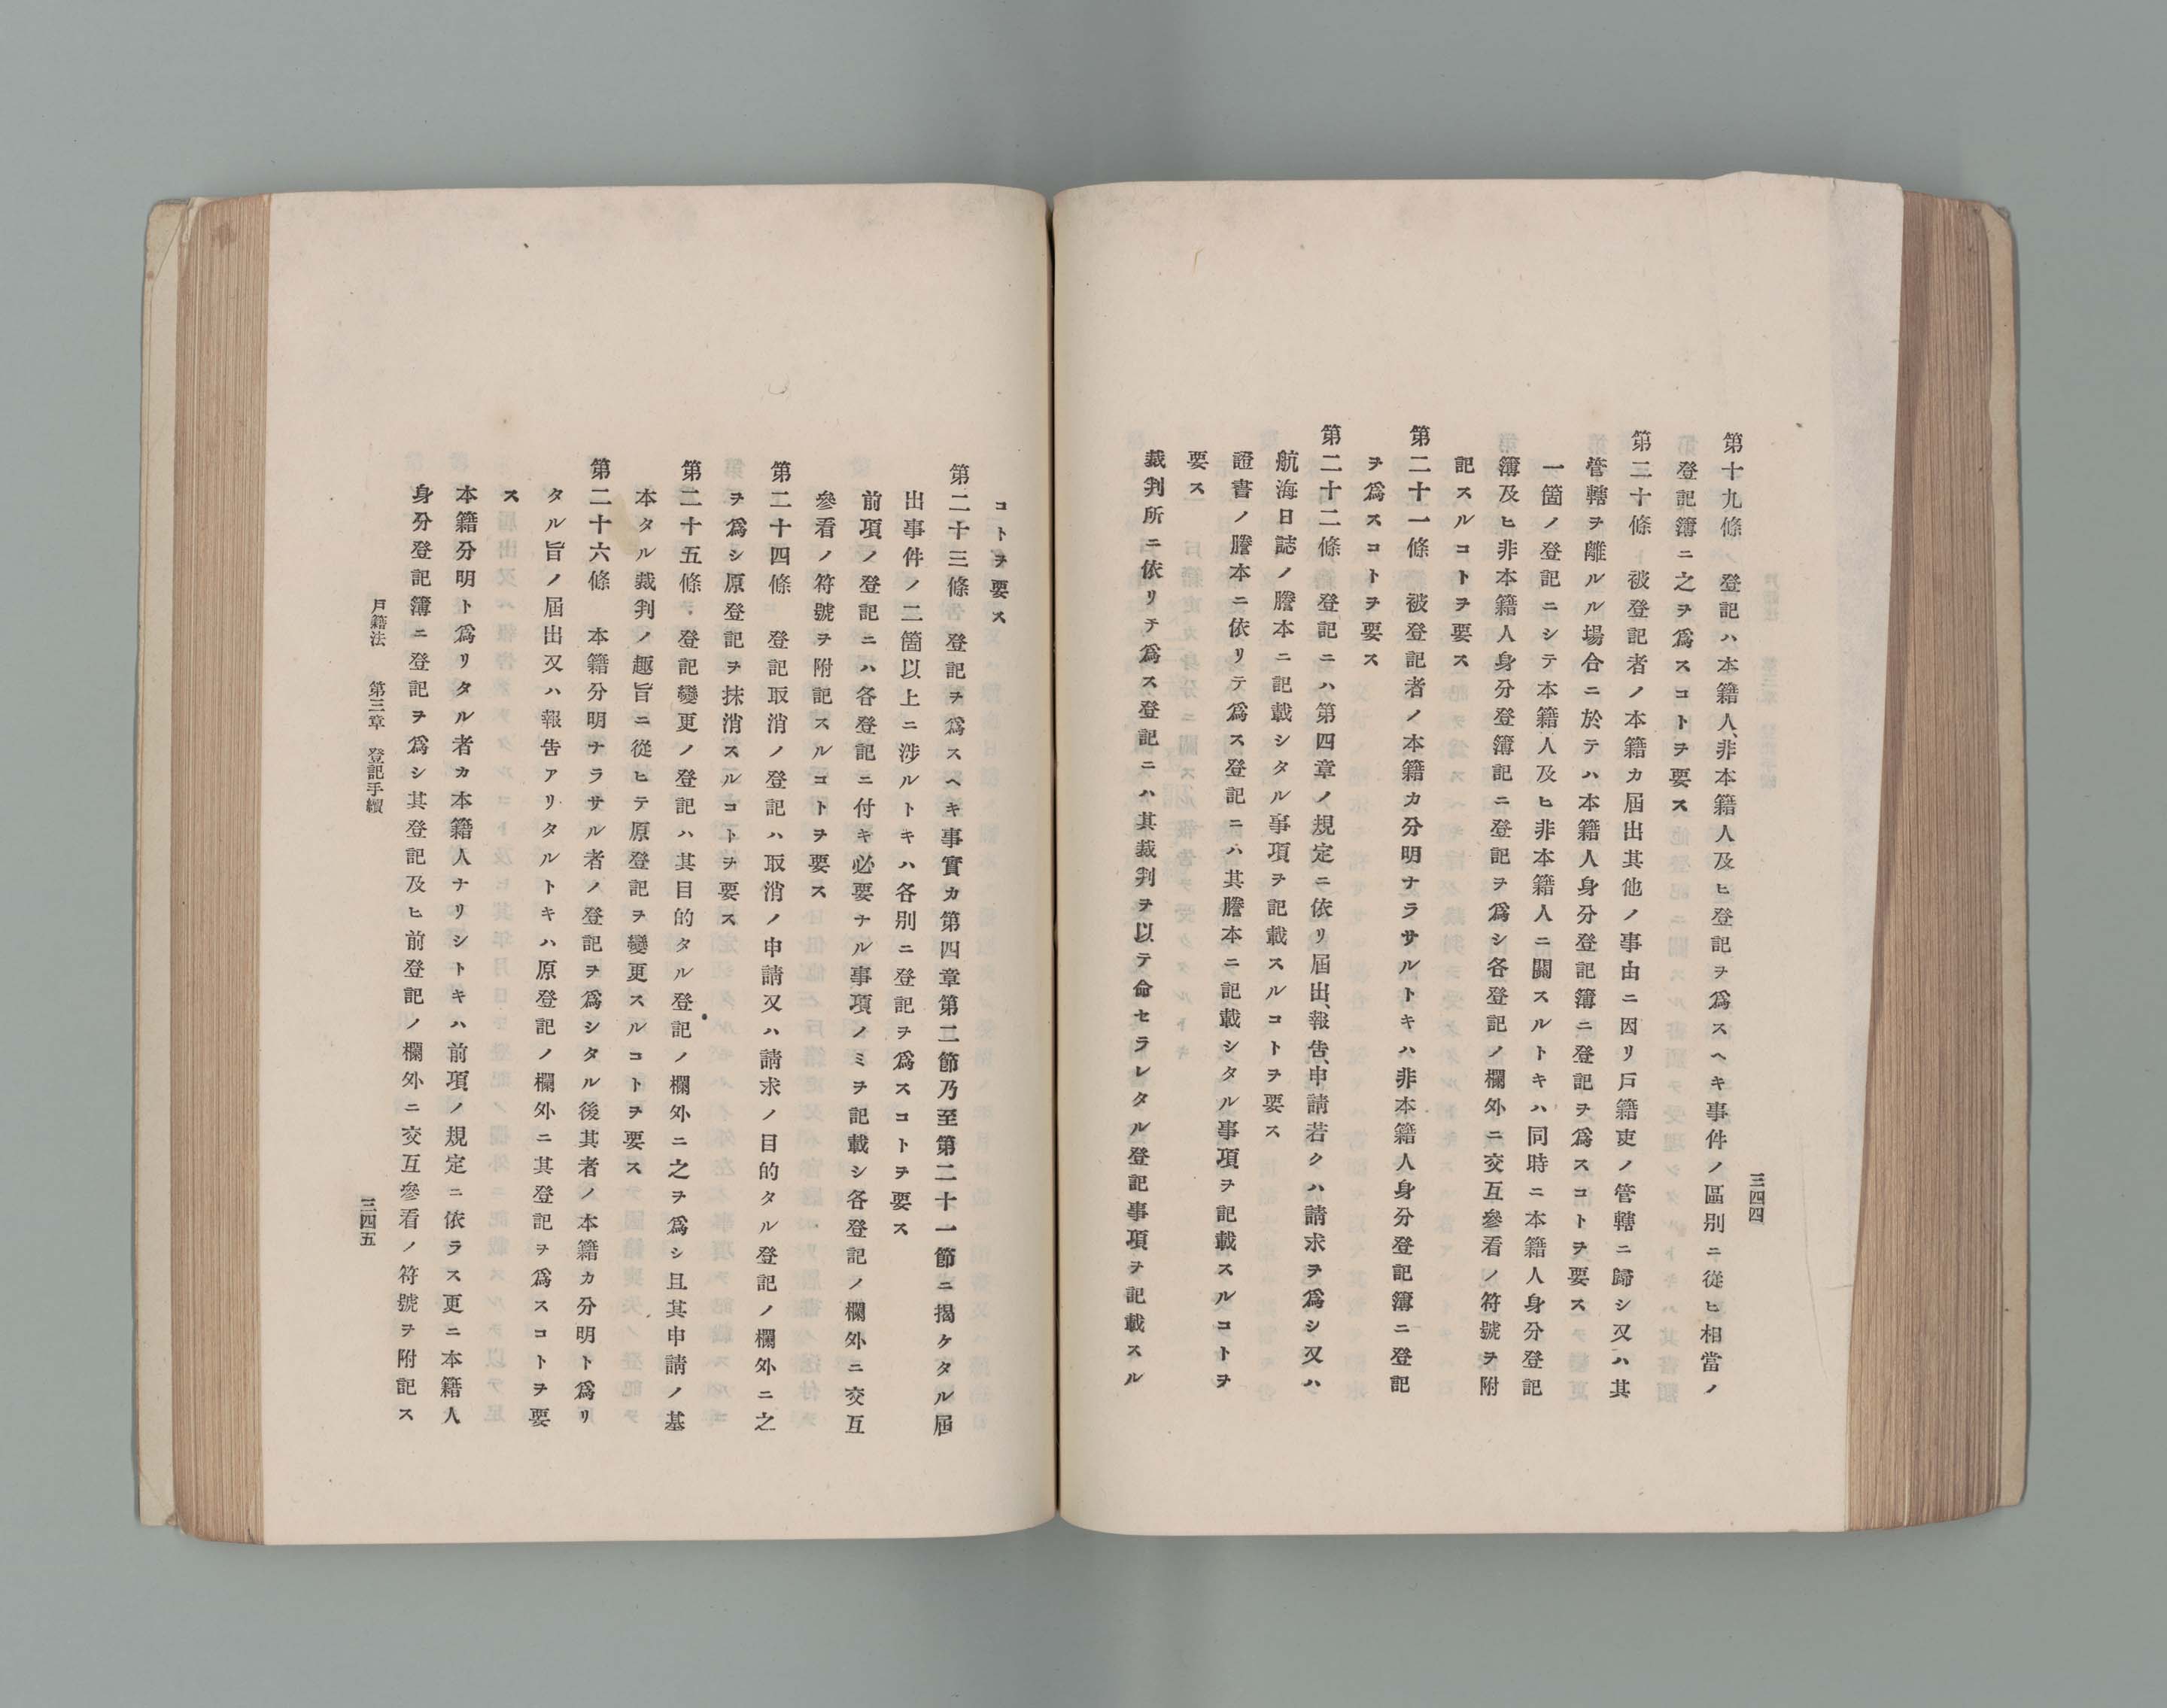 三四四
第十九條　登記ハ本籍人、非本籍人及ヒ登記ヲ爲スヘキ事件ノ區別ニ從ヒ相當ノ
登記簿ニ之ヲ爲スコトヲ要ス
第二十條　被登記者ノ本籍カ屆出其他ノ事由ニ因リ戸籍吏ノ管轄ニ歸シ又ハ其
管轄ヲ離ルル場合ニ於テハ本籍人身分登記簿ニ登記ヲ爲スコトヲ要ス
一箇ノ登記ニシテ本籍人及ヒ非本籍人ニ關スルトキハ同時ニ本籍人身分登記
簿及ヒ非本籍人身分登簿記ニ登記ヲ爲シ各登記ノ欄外ニ交互參看ノ符號ヲ附
記スルコトヲ要ス
第二十一條　被登記者ノ本籍カ分明ナラサルトキハ非本籍人身分登記簿ニ登記
ヲ爲スコトヲ要ス
第二十二條　登記ニハ第四章ノ規定ニ依リ屆出、報告、申請若クハ請求ヲ爲シ又ハ
航海日誌ノ謄本ニ記載シタル事項ヲ記載スルコトヲ要ス
證書ノ謄本ニ依リテ爲ス登記ニハ其謄本ニ記載シタル事項ヲ記載スルコトヲ
要ス
裁判所ニ依リテ爲ス登記ニハ其裁判ヲ以テ命セラレタル登記事項ヲ記載スル
コトヲ要ス
第二十三條　登記ヲ爲スヘキ事實カ第四章第二節乃至第二十一節ニ揭ケタル屆
出事件ノ二箇以上ニ涉ルトキハ各別ニ登記ヲ爲スコトヲ要ス
前項ノ登記ニハ各登記ニ付キ必要ナル事項ノミヲ記載シ各登記ノ欄外ニ交互
參看ノ符號ヲ附記スルコトヲ要ス
第二十四條　登記取消ノ登記ハ取消ノ申請又ハ請求ノ目的タル登記ノ欄外ニ之
ヲ爲シ原登記ヲ抹消スルコトヲ要ス
第二十五條　登記變更ノ登記ハ其目的タル登記ノ欄外ニ之ヲ爲シ且其申請ノ基
本タル裁判ノ趣旨ニ從ヒテ原登記ヲ變更スルコトヲ要ス
第二十六條　本籍分明ナラサル者ノ登記ヲ爲シタル後其者ノ本籍カ分明ト爲リ
タル旨ノ屆出又ハ報告アリタルトキハ原登記ノ欄外ニ其登記ヲ爲スコトヲ要
ス
本籍分明ト爲リタル者カ本籍人ナリシトキハ前項ノ規定ニ依ラス更ニ本籍人
身分登記簿ニ登記ヲ爲シ其登記及ヒ前登記ノ欄外ニ交互參看ノ符號ヲ附記ス
戸籍法　第三章　登記手續　三四五